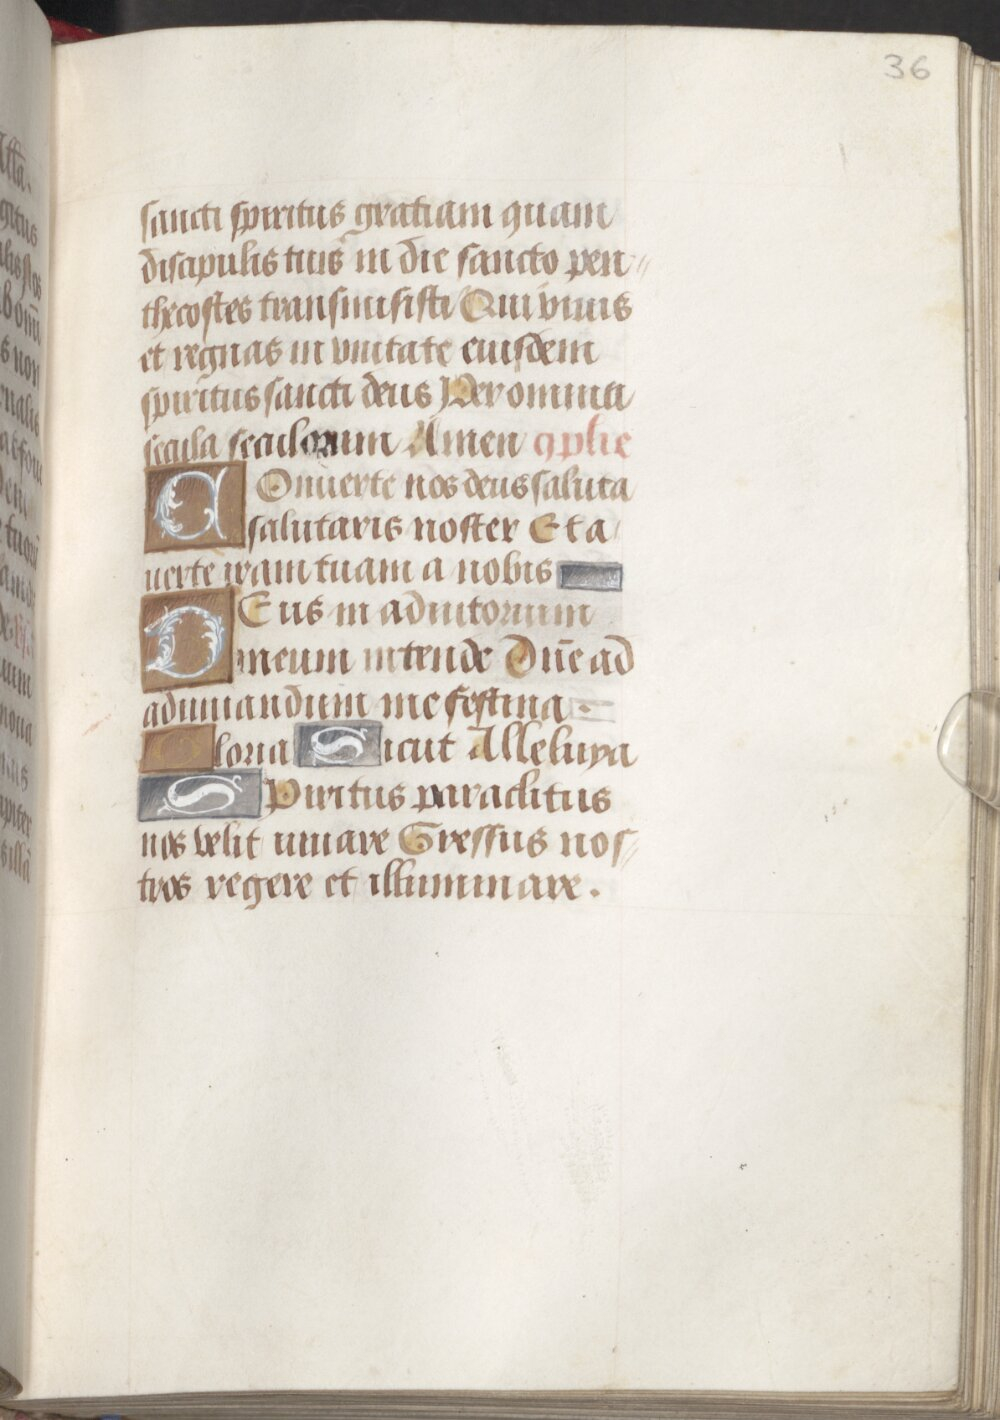 36
sancti spiritus gratiam quam
discipulis tuis in die sancto pen
thecostes transmisisti Qui viuis
et regnas in vnitate eiusdem
spiritus sancti deus Per omnia
secula seculorum Amen 9plie
COnuerte nos deus saluta
salutaris noster Et a
uerte iram tuam a nobis
DEus in adiutorium
meum intende Dn̄e ad
adiuuandum me festina
Gloria Sicut Alleluya
SPiritus paraclitus
nos velit iuuare Gressus nos
tros regere et illuminare.